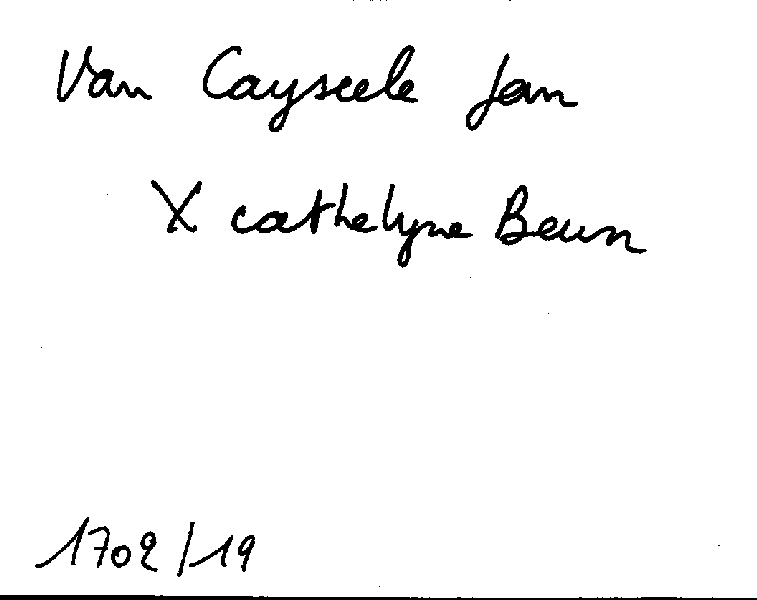 Van Cayseele Jan
X cathelyne Beun
1702/19